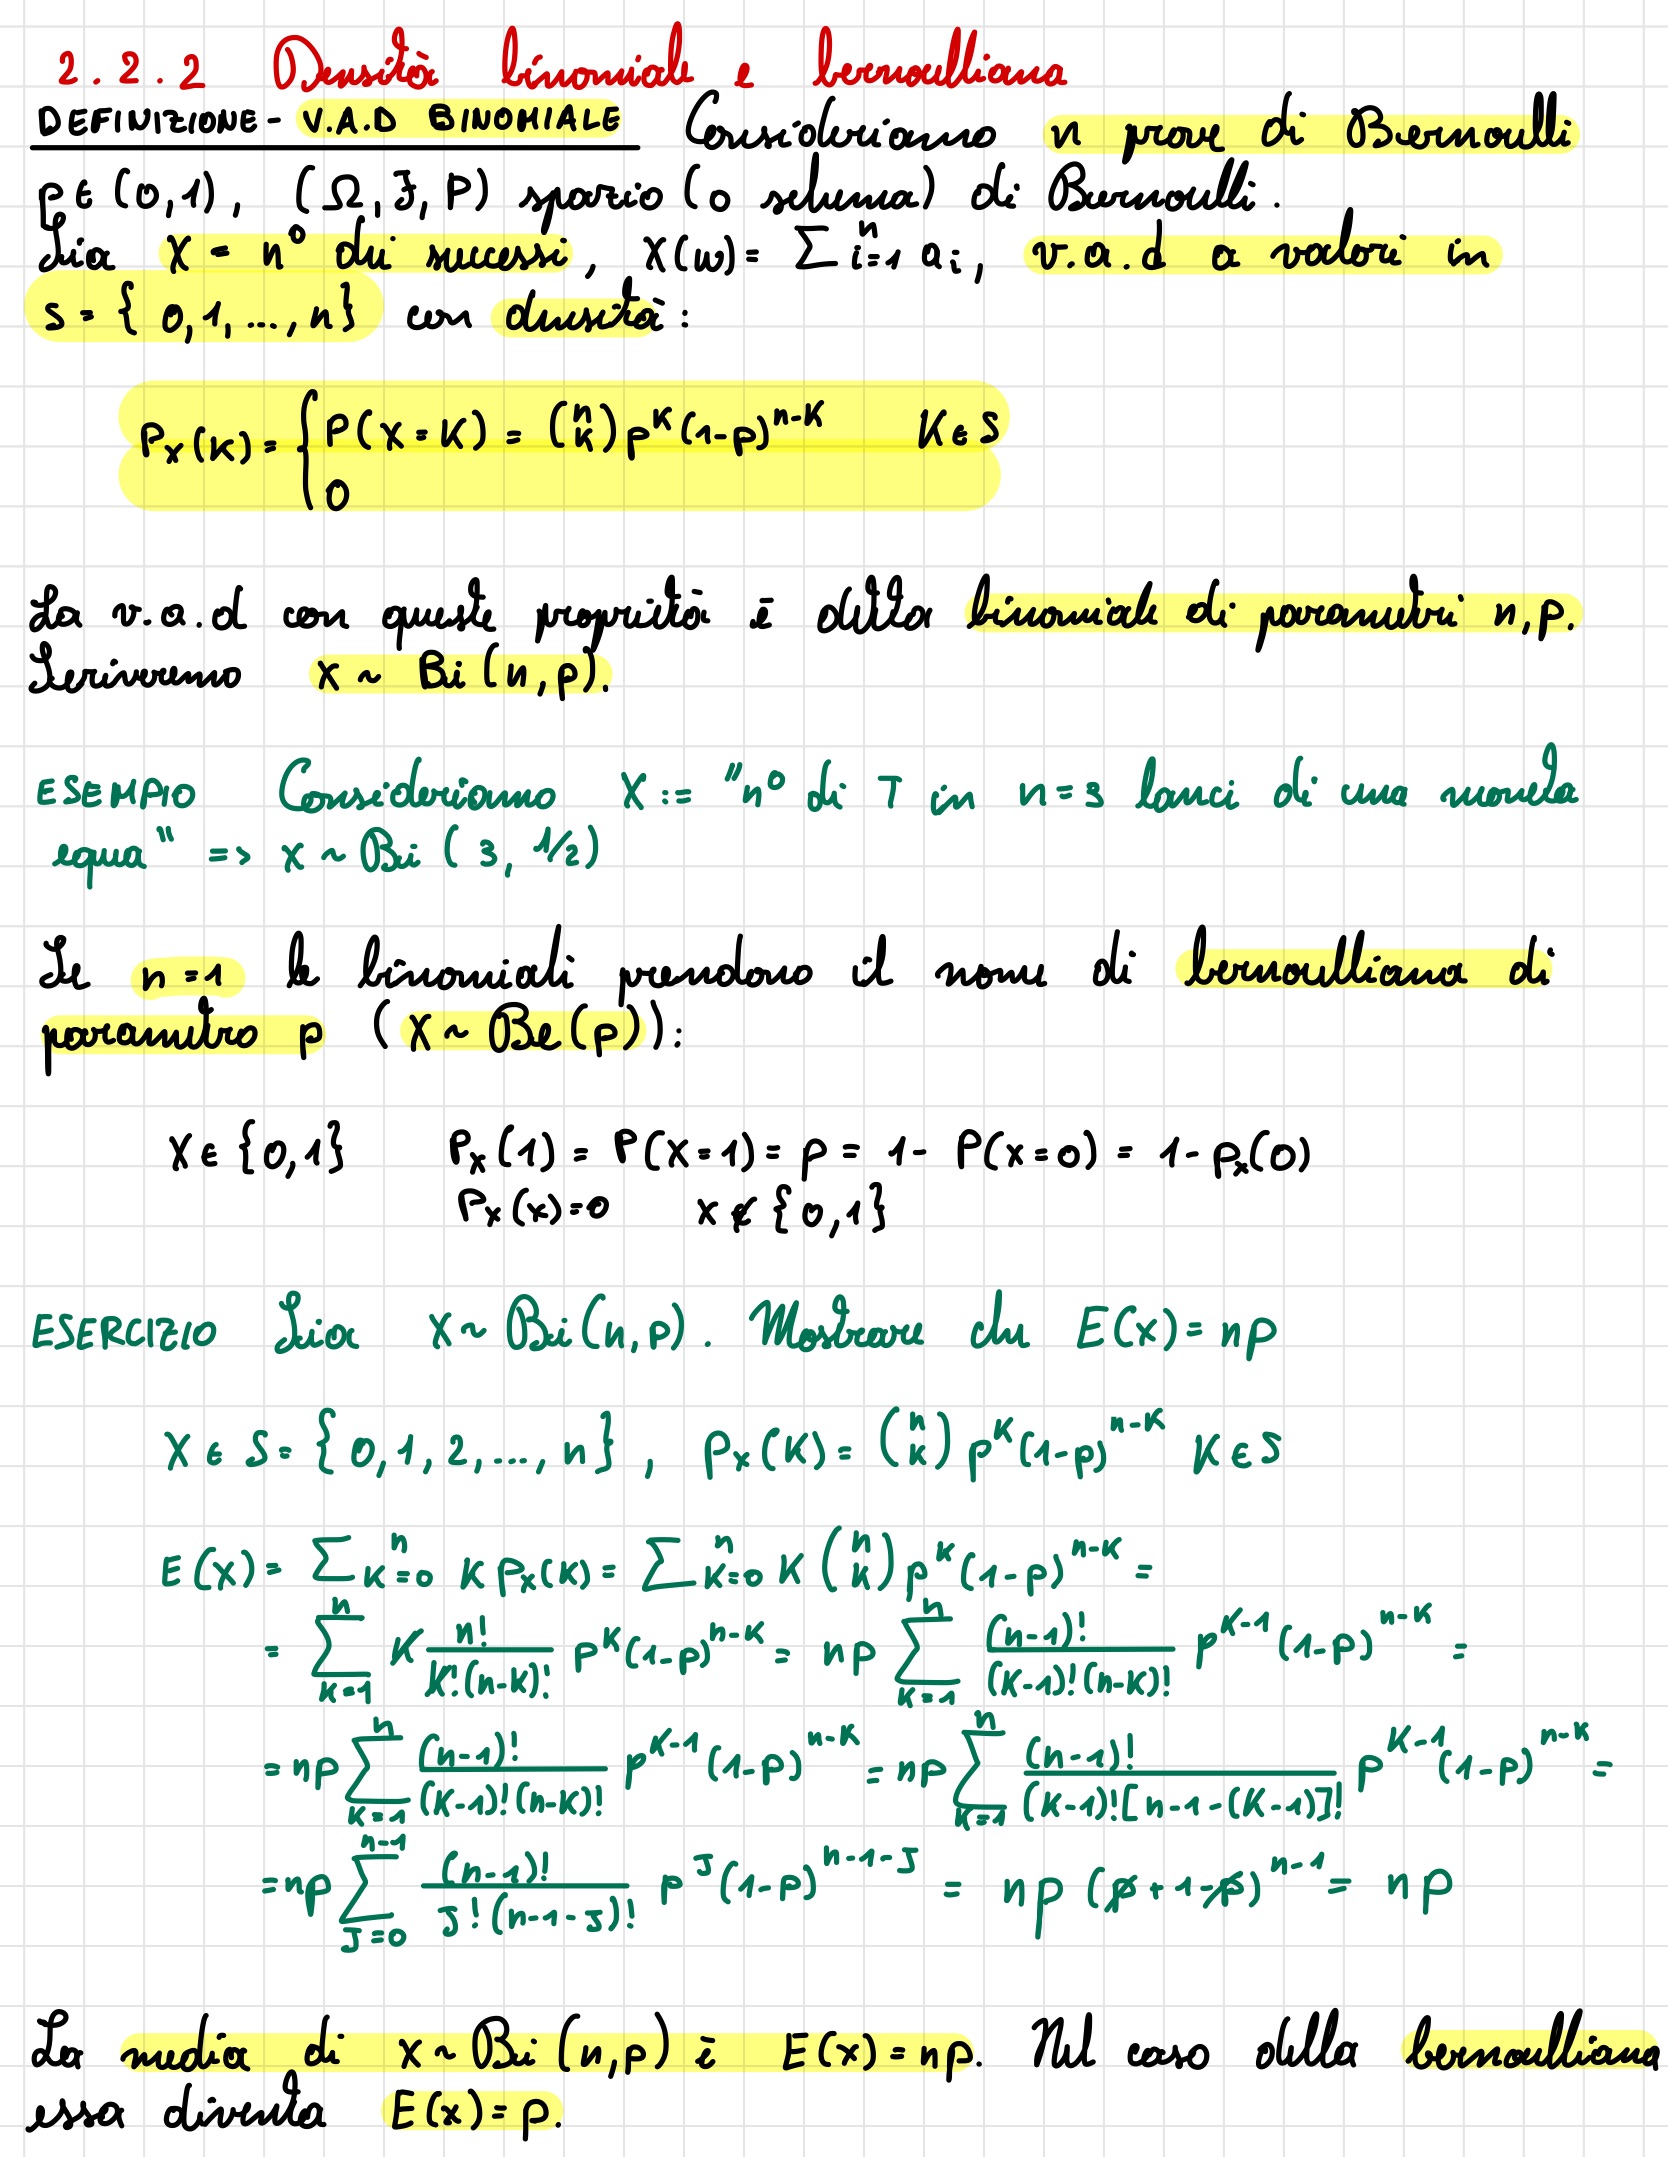 2.2.2 Densità binomiale e bernoulliana
DEFINIZIONE - V.A.D BINOMIALE Consideriamo n prove di Bernoulli
p∈(0,1), (Ω,F,P) spazio (o schema) di Bernoulli.
Sia X = n° dei successi, X(ω)= ∑ⁿᵢ₌₁ aᵢ, v.a.d a valori in
S = { 0,1,...,n} con densità:
Pₓ(K) = { P(X=K) = (n K) p^K (1-p)^{n-K} K∈S
0
La v.a.d con queste proprietà è detta binomiale di parametri n,p.
Scriveremo X ~ Bi(n,p).
ESEMPIO Consideriamo X := "n° di T in n=3 lanci di una moneta
equa" => X ~ Bi ( 3, 1/2)
Se n=1 le binomiali prendono il nome di bernoulliana di
parametro p ( X ~ Be(p)):
X∈{0,1} Pₓ(1) = P(X=1) = p = 1- P(x=0) = 1-pₓ(0)
Pₓ(x)=0 x∉{0,1}
ESERCIZIO Sia X ~ Bi(n,p). Mostrare che E(x)=np
X∈S={0,1,2,...,n}, Pₓ(K)= (n K) p^K (1-p)^{n-K} K∈S
E(X)= ∑_{K=0}^{n} K Pₓ(K) = ∑_{K=0}^{n} K (n K) p^K (1-p)^{n-K} =
= ∑_{K=1}^{n} K n!/(K!(n-K)!) p^K (1-p)^{n-K} = np ∑_{K=1}^{n} (n-1)!/((K-1)!(n-K)!) p^{K-1} (1-p)^{n-K} =
= np ∑_{K=1}^{n} (n-1)!/((K-1)!(n-K)!) p^{K-1} (1-p)^{n-K} = np ∑_{K=1}^{n} (n-1)!/((K-1)![n-1-(K-1)]!) p^{K-1} (1-p)^{n-K} =
= np ∑_{J=0}^{n-1} (n-1)!/(J!(n-1-J)!) p^J (1-p)^{n-1-J} = np (p+1-p)^{n-1} = np
La media di X ~ Bi(n,p) è E(x)=np. Nel caso della bernoulliana
essa diventa E(x)=p.